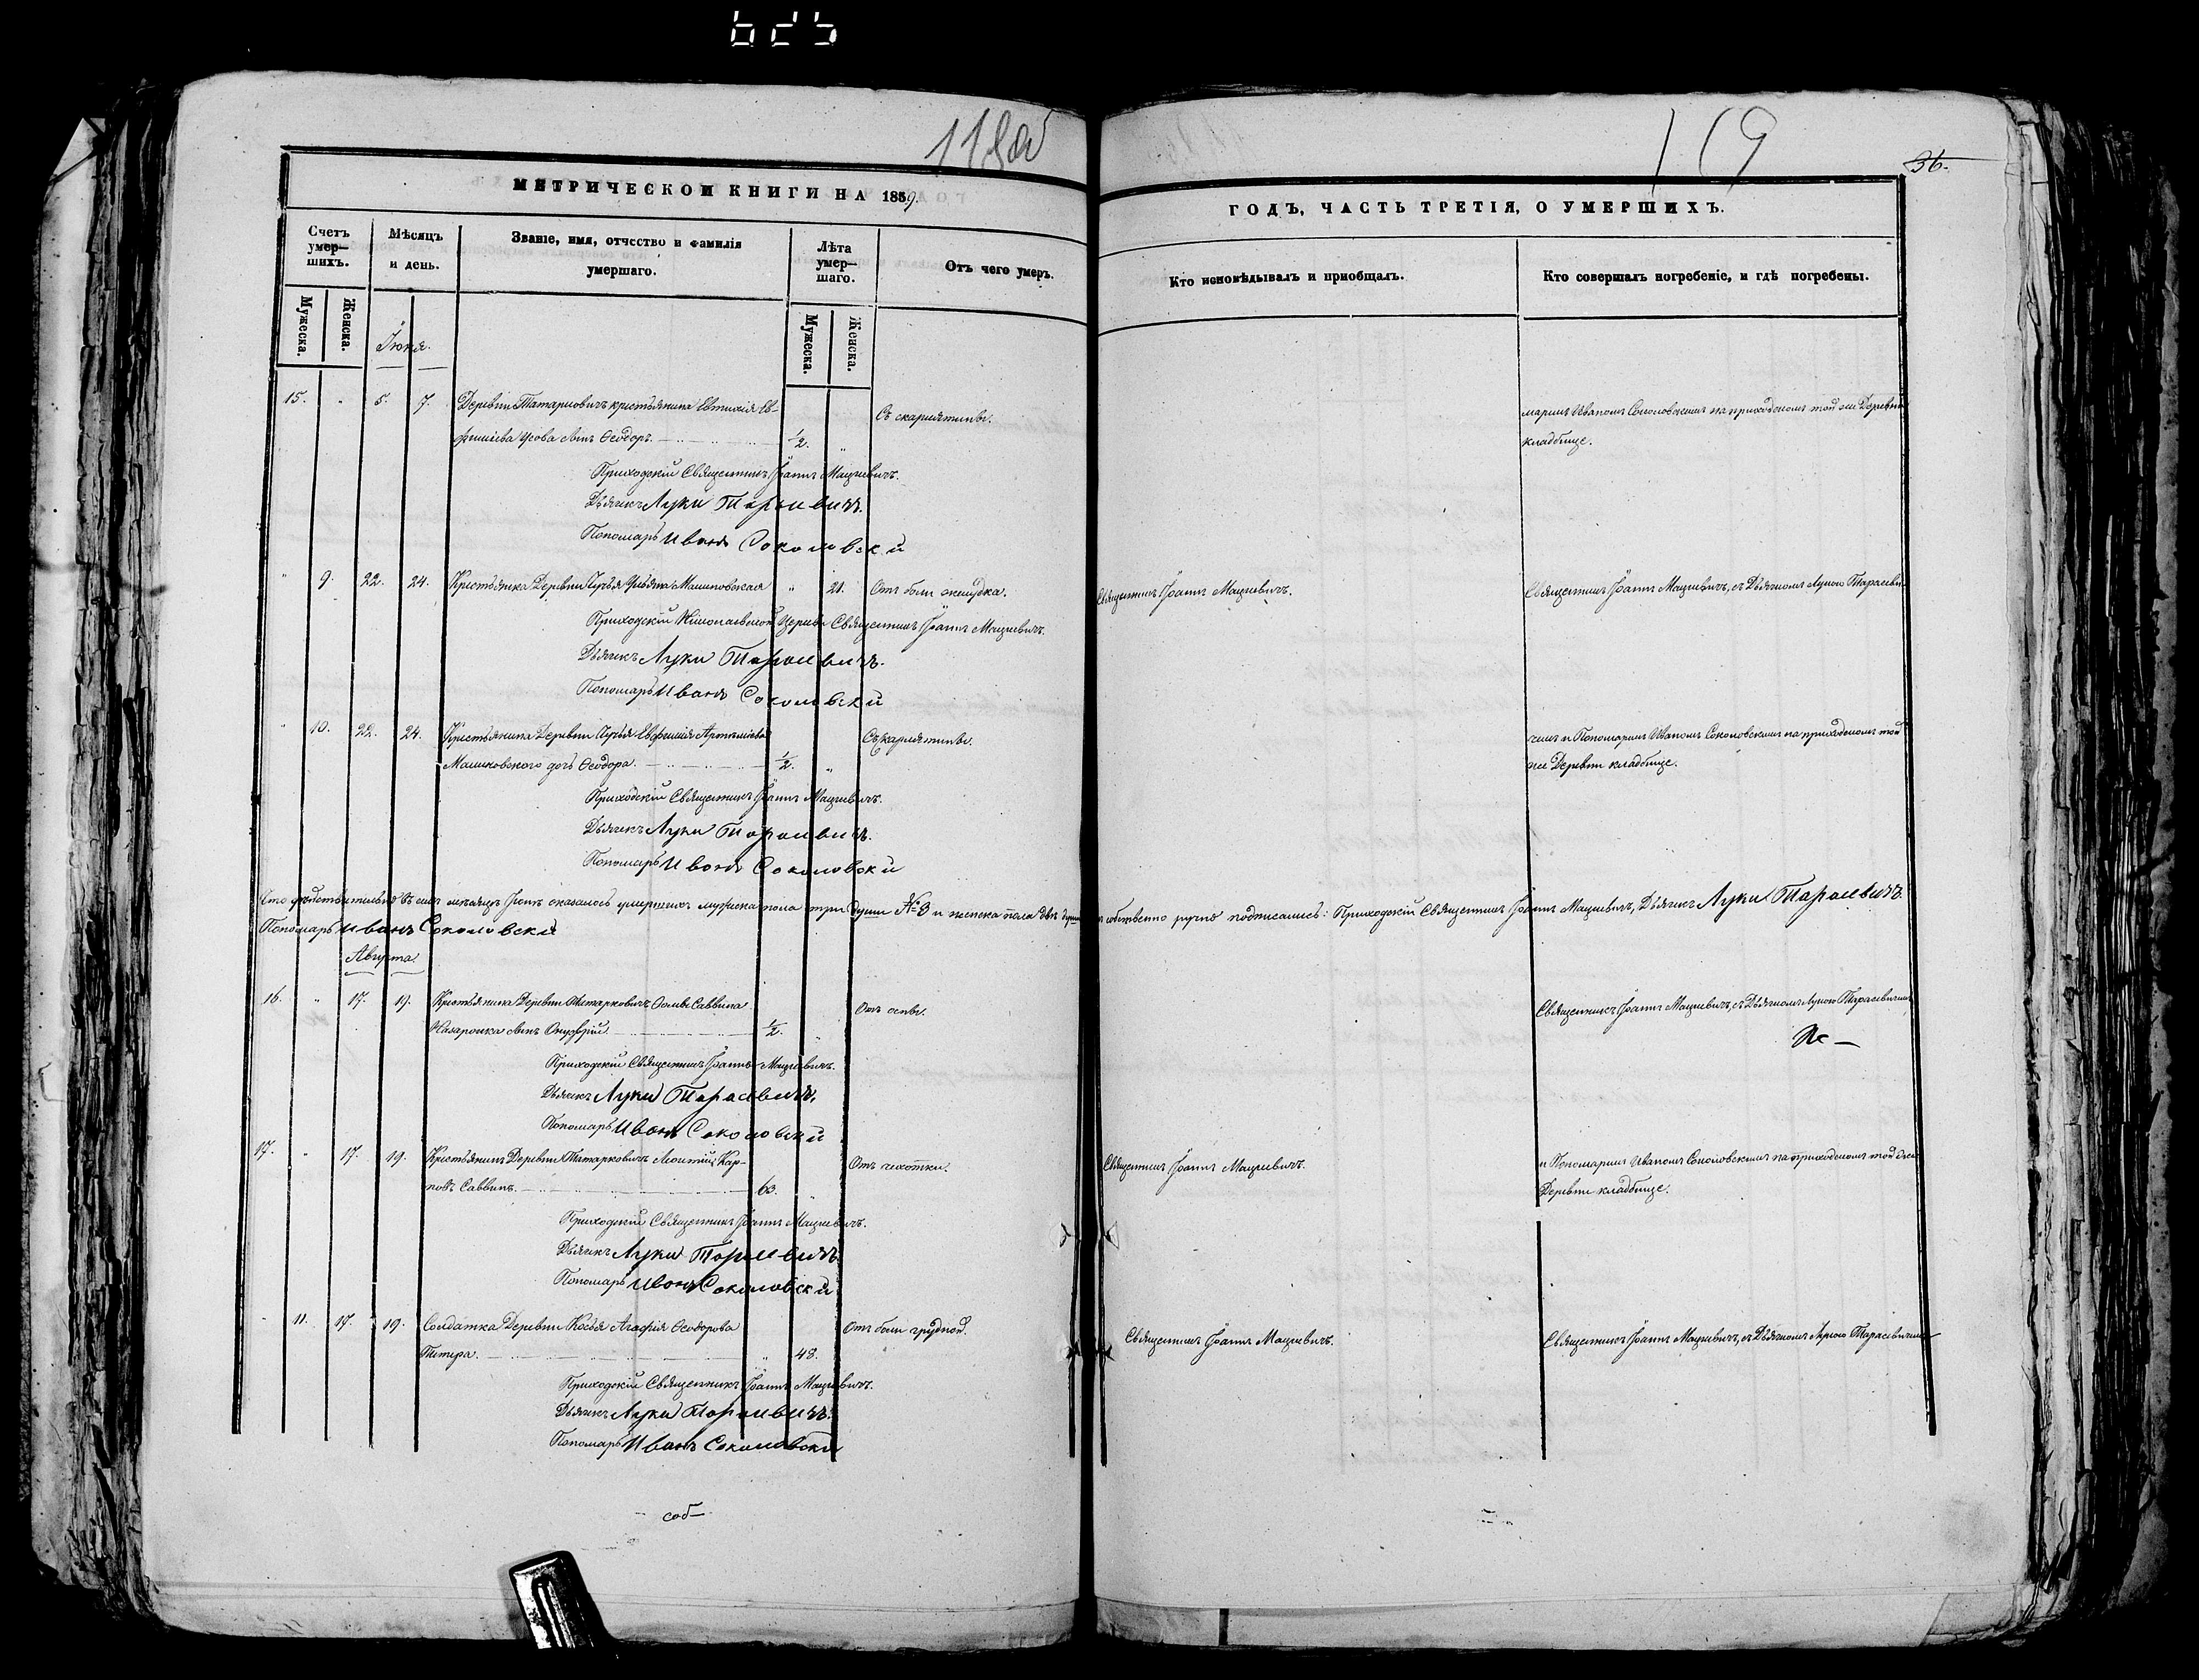 118об
119
36.
МЕТРИЧЕСКОЙ КНИГИ НА 1859.
ГОДЪ, ЧАСТЬ ТРЕТІЯ, О УМЕРШИХЪ.
Счетъ умер—шихъ.
Мѣсяцъ и день.
Званіе, имя, отчество и фамилія умершаго.
Лѣта умер—шаго.
Отъ чего умеръ.
Кто исповѣдывалъ и приобщалъ.
Кто совершалъ погребеніе, и гдѣ погребены.
Мужеска.
Женска.
Мужеска.
Женска.
15. " 5. 7. Деревни Татарковичъ крестьянина Евтихія Ев-
Съ скарлятины.
марим Иваномъ Соколовскимъ на приходскомъ той же Деревни
фиміева Усова сынъ Ѳеодоръ. ½. "
кладбище.
Приходскій Священникъ Іоаннъ Мацкевичъ.
Дьячекъ Луки Тарасевичъ.
Пономарь Иванъ Соколовски
" 9. 22. 24. Крестьянка Деревни Ульяна Малиновская " 21. Отъ боли желудка.
Священникъ Іоаннъ Мацкевичъ.
Священникъ Іоаннъ Мацкевичъ, съ Дьячкомъ Лукою Тарасеви-
Приходскій Николаевской Церкви Священникъ Іоаннъ Мацкевичъ.
Дьячекъ Луки Тарасевичъ.
Пономарь Иванъ Соколовски
" 10. 22. 24. Крестьянина Деревни Евфимія Артеміева
Съ скарлятины.
чемъ и Пономаримъ Иваномъ Соколовскимъ на приходскомъ той
дочь Ѳеодора. ½. "
же Деревни кладбище.
Приходскій Священникъ Іоаннъ Мацкевичъ.
Дьячекъ Луки Тарасевичъ.
Пономарь Иванъ Соколовски
Что дѣйствительно въ семъ мѣсяцѣ оказалось умершихъ мужеска пола три души №3 и женска пола двѣ собственно ручно подписались: Приходскій Священникъ Іоаннъ Мацкевичъ, Дьячекъ Луки Тарасевичъ
Пономарь Иванъ Соколовски
Августа.
16. " 17. 19. Крестьянина Деревни Татарковичъ Саввина
Отъ оспы.
Священникъ Іоаннъ Мацкевичъ, съ Дьячкомъ Лукою Тарасевичемъ
Назаронка сынъ Онуфрій. ½. "
Приходскій Священникъ Іоаннъ Мацкевичъ.
Дьячекъ Луки Тарасевичъ.
Пономарь Иванъ Соколовски
17. " 17. 19. Крестьянинъ Деревни Татарковичъ Леонтій Кар-
Отъ чахотки.
Священникъ Іоаннъ Мацкевичъ.
и Пономаримъ Иваномъ Соколовскимъ на приходскомъ той же
повъ Саввинъ. 63. "
Деревни кладбище.
Приходскій Священникъ Іоаннъ Мацкевичъ.
Дьячекъ Луки Тарасевичъ
Пономарь Иванъ Соколовски
" 11. 17. 19. Солдатка Деревни Агафія Ѳеодорова
Отъ боли грудной.
Священникъ Іоаннъ Мацкевичъ.
Священникъ Іоаннъ Мацкевичъ, съ Дьячкомъ Лукою Тарасевичемъ
" 48.
Приходскій Священникъ Іоаннъ Мацкевичъ.
Дьячекъ Луки Тарасевичъ.
Пономарь Иванъ Соколовски
соб—